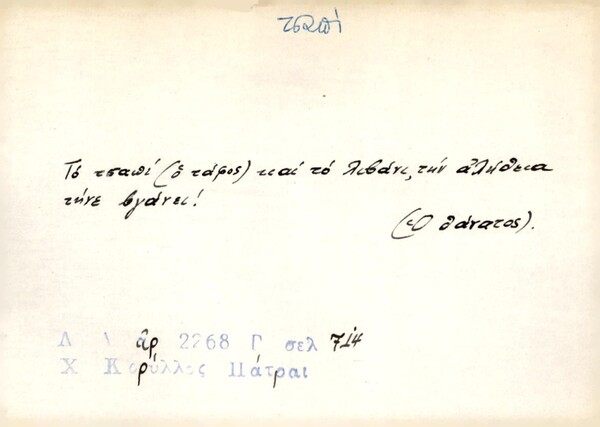 τσαπί
Τό τσαπί (ὁ τάφος) καί τό λιβάνι, τήν ἀλήθεια
τήνε βγάνει!
(Ὁ θάνατος).
Λ Α ἀρ 2268 Γ σελ 714
Χ Κορύλλος Πάτραι